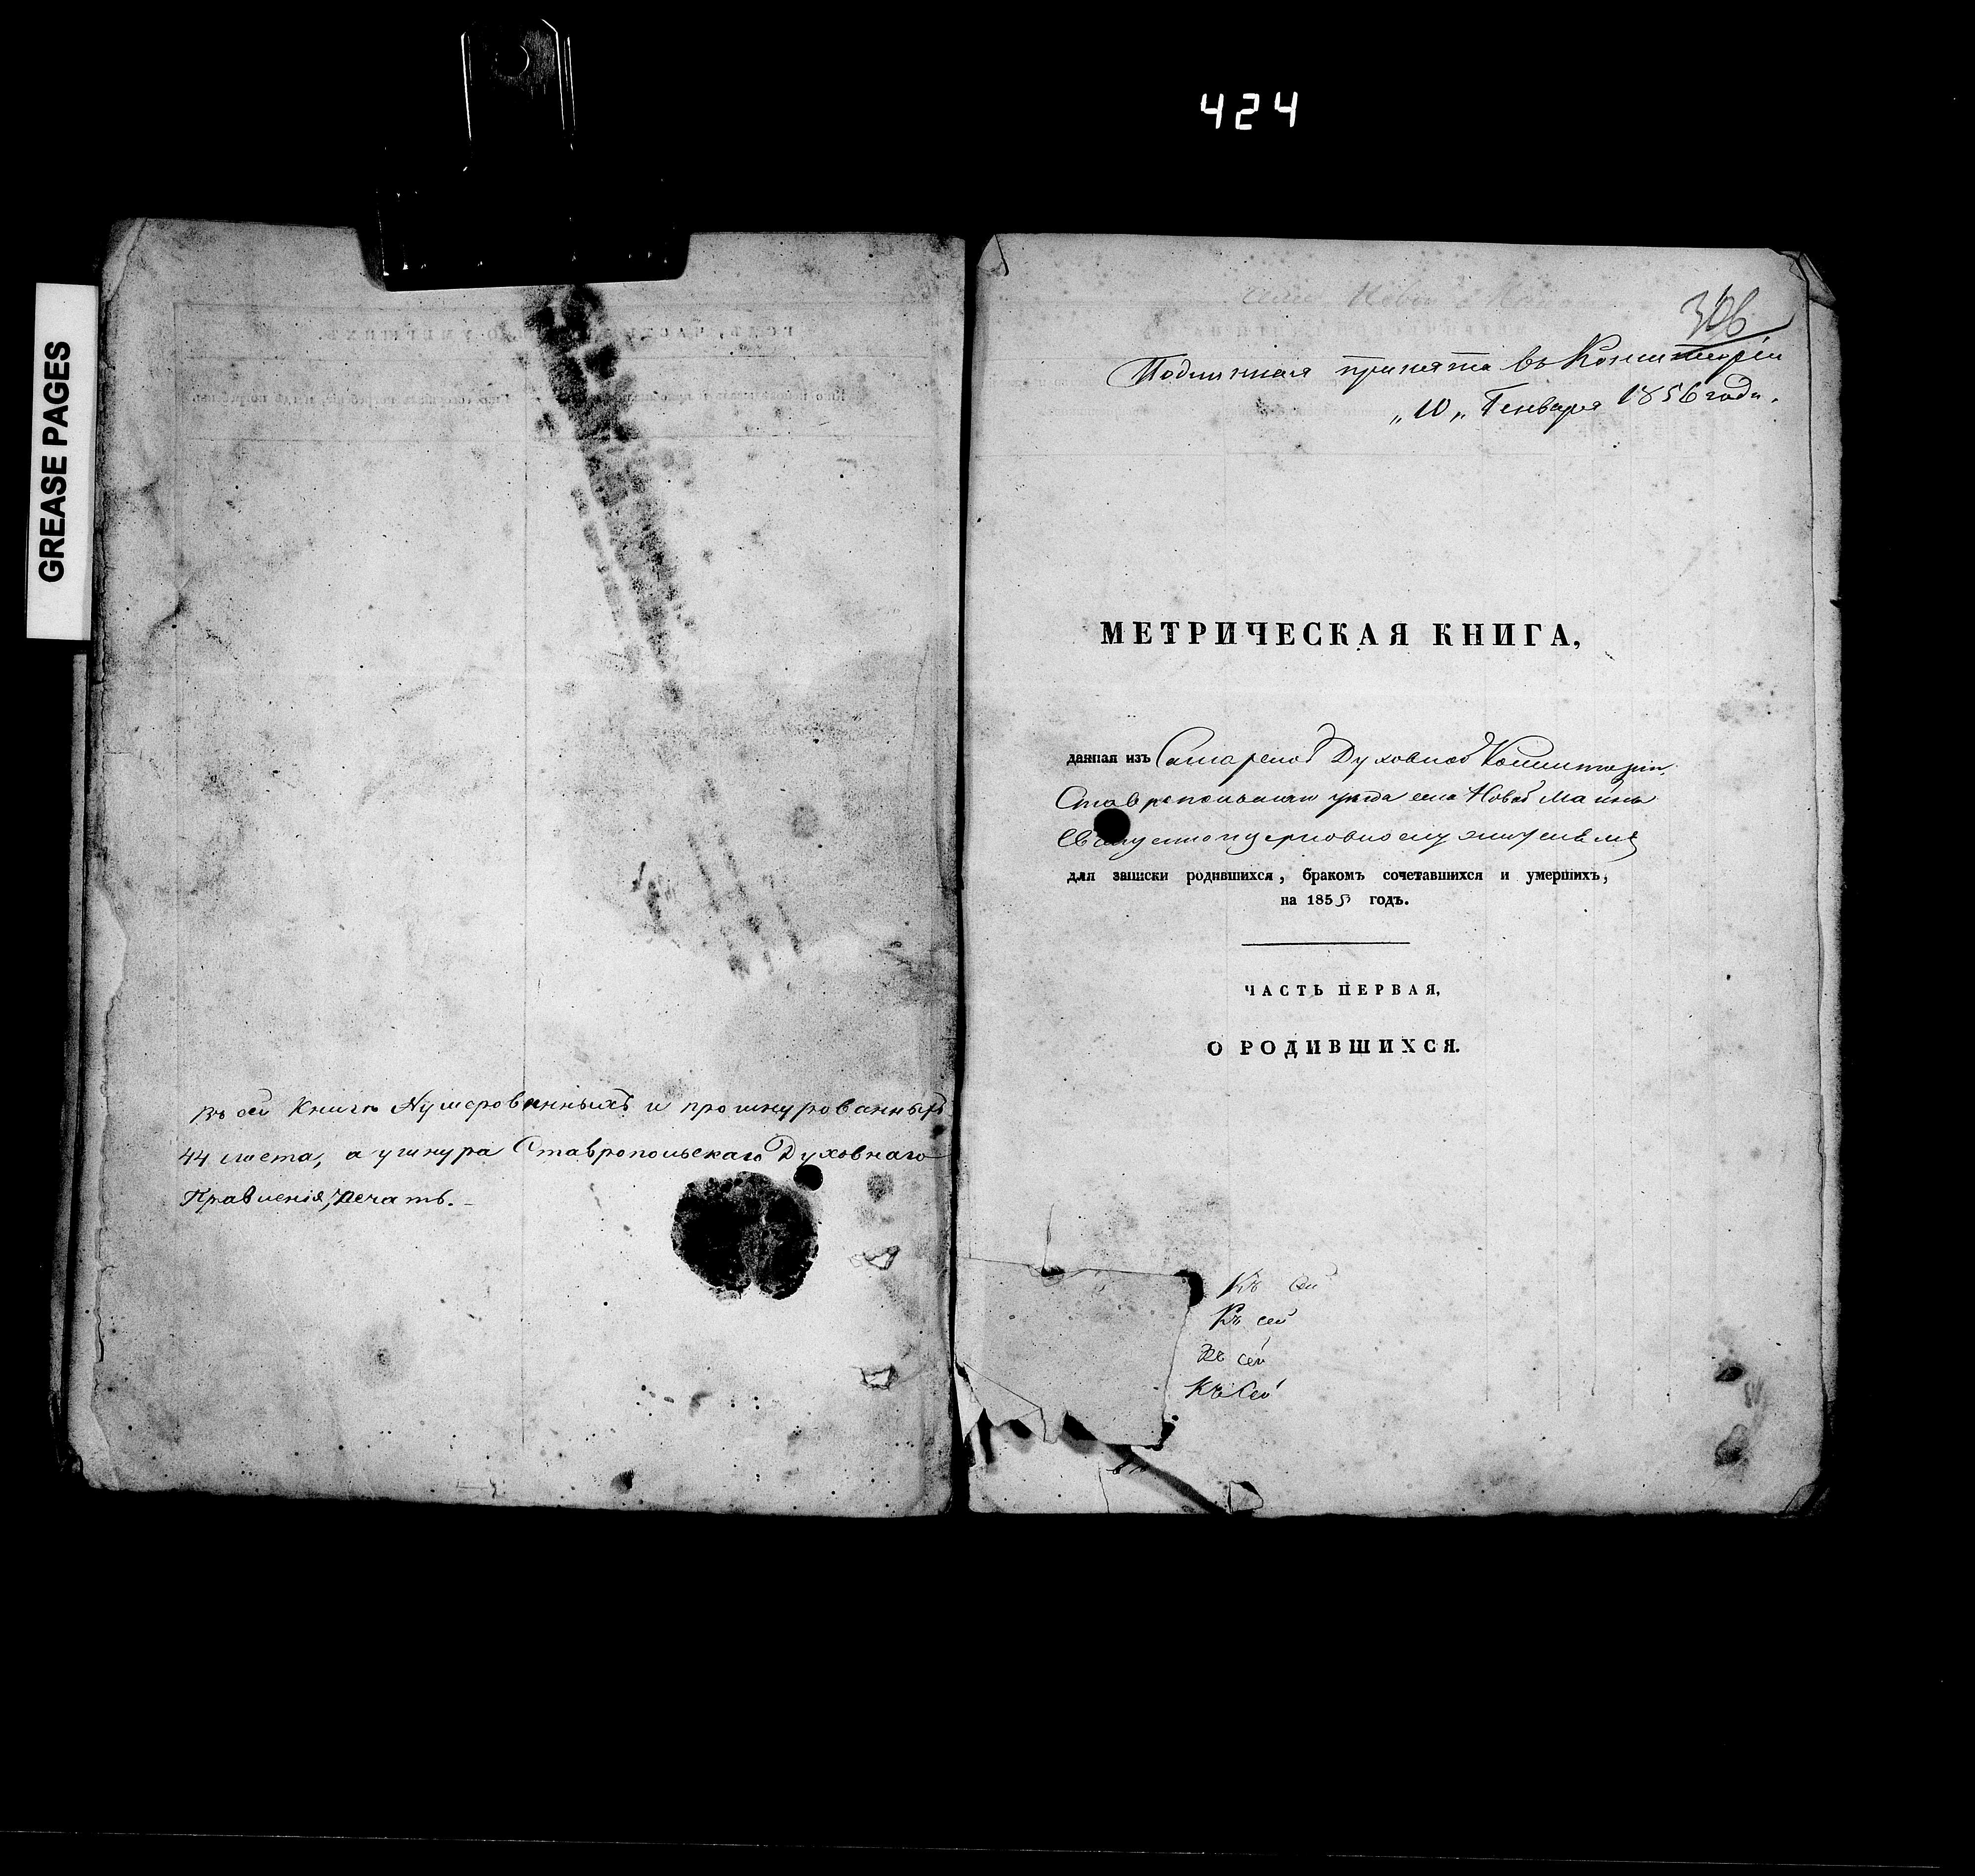 424
GREASE PAGES
Въ сей Книгѣ Нумерованныхъ и прошнурованныхъ
44 листа, а у шнура Ставропольскаго Духовнаго
Правленія, печать.
306
Подлинная принята въ Консисторіи
„10„ Генваря 1856 года.
МЕТРИЧЕСКАЯ КНИГА,
данная изъ Самарской Духовной Консисторіи,
Ставропольскаго уѣзда села Новой Майны
священноцерковнослужителямъ
для записки родившихся, бракомъ сочетавшихся и умершихъ,
на 1855 годъ.
ЧАСТЬ ПЕРВАЯ,
О РОДИВШИХСЯ.
Къ сей
Къ сей
Къ сей
Къ сей